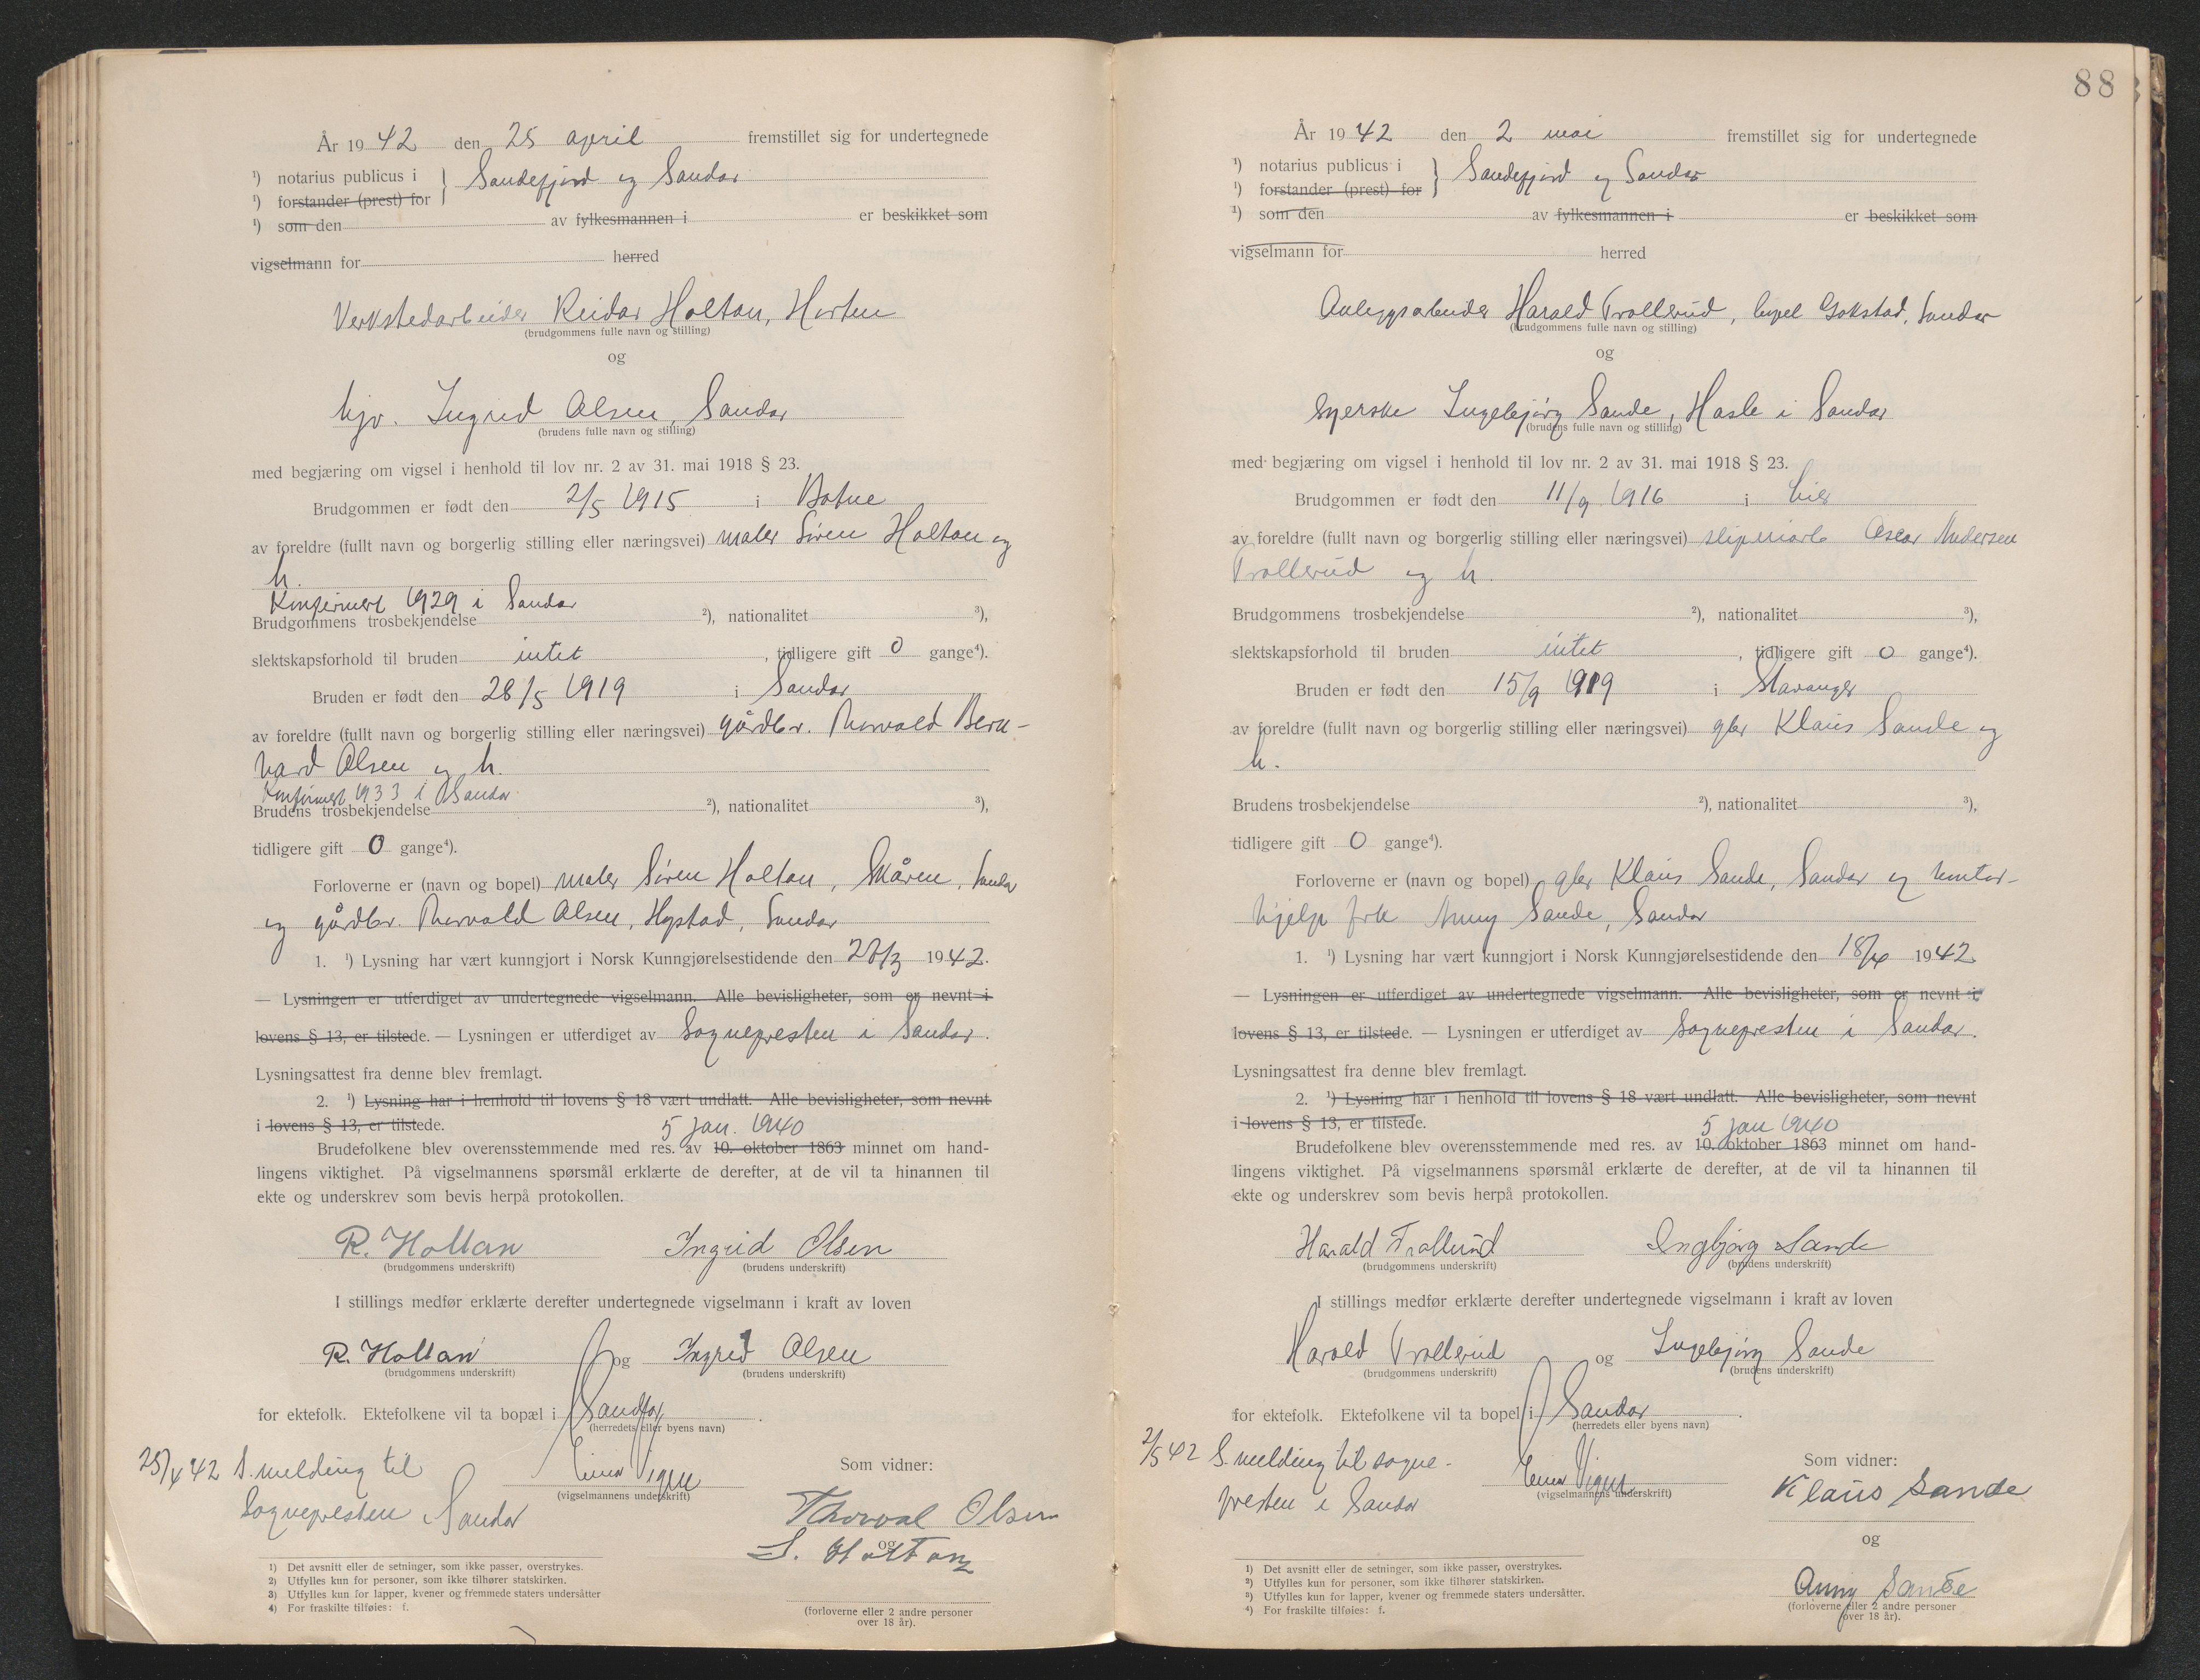 År 1942 den 25 april fremstillet sig for undertegnede
¹) notarius publicus i } Sandefjord og Sandar
¹) forstander (prest) for
¹) som den av fylkesmannen i er beskikket som
vigselmann for herred
Verkstedarbeider Reidar Holtan, Horten
(brudgommens fulle navn og stilling)
og
hjv. Ingrid Olsen, Sandar
(brudens fulle navn og stilling)
med begjæring om vigsel i henhold til lov nr. 2 av 31. mai 1918 § 23.
Brudgommen er født den 2/5 1915 i Botne
av foreldre (fullt navn og borgerlig stilling eller næringsvei) maler Søren Holtan og
h.
Konfirmert 1929 i Sandar
Brudgommens trosbekjendelse ²), nationalitet ³),
slektskapsforhold til bruden intet, tidligere gift 0 gange⁴).
Bruden er født den 28/5 1919 i Sandar
av foreldre (fullt navn og borgerlig stilling eller næringsvei) gårdbr. Thorvald Bern-
hard Olsen og h.
Konfirmert 1933 i Sandar
Brudens trosbekjendelse ²), nationalitet ³),
tidligere gift 0 gange⁴).
Forloverne er (navn og bopel) maler Søren Holtan, Skåren, Sandar
og gårdbr. Thorvald Olsen, Hystad, Sandar
1. ¹) Lysning har vært kunngjort i Norsk Kunngjørelsestidende den 27/3 1942.
— Lysningen er utferdiget av undertegnede vigselmann. Alle bevisligheter, som er nevnt i
lovens § 13, er tilstede. — Lysningen er utferdiget av Sognepresten i Sandar.
Lysningsattest fra denne blev fremlagt.
2. ¹) Lysning har i henhold til lovens § 18 vært undlatt. Alle bevisligheter, som nevnt
i lovens § 13, er tilstede. 5 jan. 1940
Brudefolkene blev overensstemmende med res. av 10. oktober 1863 minnet om hand-
lingens viktighet. På vigselmannens spørsmål erklærte de derefter, at de vil ta hinannen til
ekte og underskrev som bevis herpå protokollen.
R. Holtan Ingrid Olsen
(brudgommens underskrift) (brudens underskrift)
I stillings medfør erklærte derefter undertegnede vigselmann i kraft av loven
R. Holtan og Ingrid Olsen
(brudgommens underskrift) (brudens underskrift)
for ektefolk. Ektefolkene vil ta bopæl i Sandar.
(herredets eller byens navn)
25/4 42 S. melding til
Sognepresten i Sandar
Einar Vigen
(vigselmannens underskrift)
Som vidner:
Thorval Olsen
og
S. Holtan
(forloverne eller 2 andre personer
over 18 år).
1) Det avsnitt eller de setninger, som ikke passer, overstrykes.
2) Utfylles kun for personer, som ikke tilhører statskirken.
3) Utfylles kun for lapper, kvener og fremmede staters undersåtter
4) For fraskilte tilføies: f.
88
År 1942 den 2 mai fremstillet sig for undertegnede
¹) notarius publicus i } Sandefjord og Sandar
¹) forstander (prest) for
¹) som den av fylkesmannen i er beskikket som
vigselmann for herred
Anleggsarbeider Harald Trollerud, bopel Gokstad, Sandar
(brudgommens fulle navn og stilling)
og
syerske Ingebjørg Sande, Hasle i Sandar
(brudens fulle navn og stilling)
med begjæring om vigsel i henhold til lov nr. 2 av 31. mai 1918 § 23.
Brudgommen er født den 11/9 1916 i Lier
av foreldre (fullt navn og borgerlig stilling eller næringsvei) sliperiarb Oscar Andersen
Trollerud og h.
Brudgommens trosbekjendelse ²), nationalitet ³),
slektskapsforhold til bruden intet, tidligere gift 0 gange⁴).
Bruden er født den 15/9 1919 i Stavanger
av foreldre (fullt navn og borgerlig stilling eller næringsvei) gbr Klaus Sande og
h.
Brudens trosbekjendelse ²), nationalitet ³),
tidligere gift 0 gange⁴).
Forloverne er (navn og bopel) gbr Klaus Sande, Sandar og kontor-
hjelp frk Anny Sande, Sandar
1. ¹) Lysning har vært kunngjort i Norsk Kunngjørelsestidende den 18/4 1942
— Lysningen er utferdiget av undertegnede vigselmann. Alle bevisligheter, som er nevnt i
lovens § 13, er tilstede. — Lysningen er utferdiget av Sognepresten i Sandar.
Lysningsattest fra denne blev fremlagt.
2. ¹) Lysning har i henhold til lovens § 18 vært undlatt. Alle bevisligheter, som nevnt
i lovens § 13, er tilstede. 5 jan 1940
Brudefolkene blev overensstemmende med res. av 10. oktober 1863 minnet om hand-
lingens viktighet. På vigselmannens spørsmål erklærte de derefter, at de vil ta hinannen til
ekte og underskrev som bevis herpå protokollen.
Harald Trollerud Ingbjørg Sande
(brudgommens underskrift) (brudens underskrift)
I stillings medfør erklærte derefter undertegnede vigselmann i kraft av loven
Harald Trollerud og Ingebjørg Sande
(brudgommens underskrift) (brudens underskrift)
for ektefolk. Ektefolkene vil ta bopel i Sandar.
(herredets eller byens navn)
2/5 42 S. melding til sogne-
presten i Sandar
Einar Vigen
(vigselmannens underskrift)
Som vidner:
Klaus Sande
og
Anny Sande
(forloverne eller 2 andre personer
over 18 år).
1) Det avsnitt eller de setninger, som ikke passer, overstrykes.
2) Utfylles kun for personer, som ikke tilhører statskirken.
3) Utfylles kun for lapper, kvener og fremmede staters undersåtter.
4) For fraskilte tilføies: f.